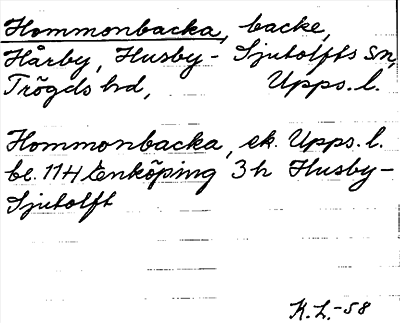 Hommonbacka, backe,
Hårby, Husby-Sjutolfts sn,
Trögds hd, Upps. l.
Hommonbacka, ek. Upps. l.
bl. 114 Enköping 3h Husby-
Sjutolft
K.L.-58